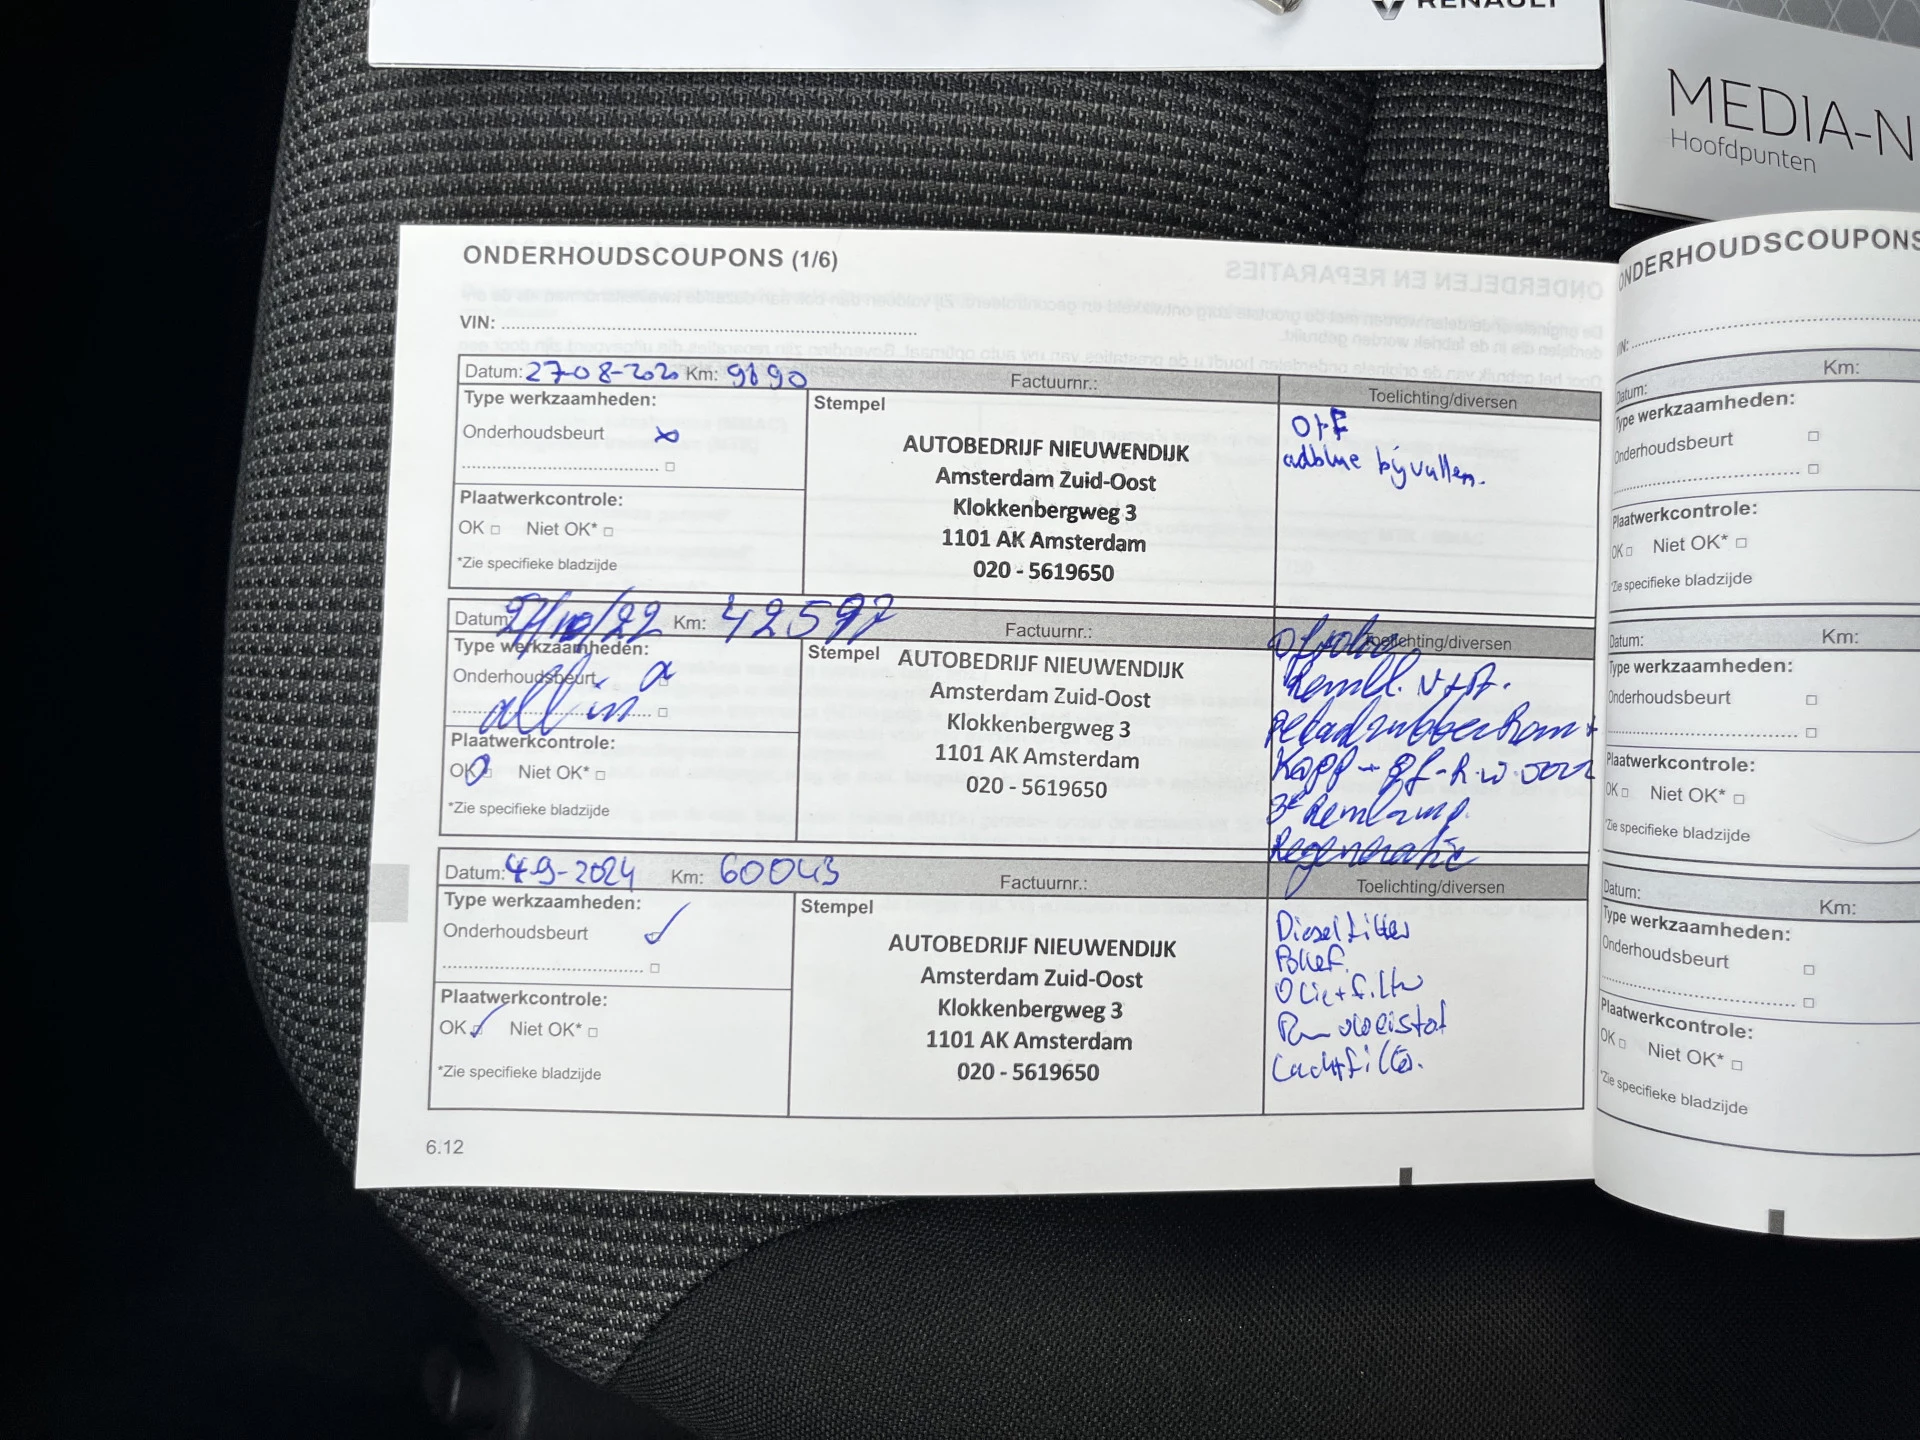 RENAULT
MEDIA-N
Hoofdpunten
ONDERHOUDSCOUPONS (1/6)
VIN:
Datum: 27-08-2020 Km: 9890 Factuurnr.: Toelichting/diversen
Type werkzaamheden:
Onderhoudsbeurt
Plaatwerkcontrole:
OK Niet OK*
*Zie specifieke bladzijde
Stempel
AUTOBEDRIJF NIEUWENDIJK
Amsterdam Zuid-Oost
Klokkenbergweg 3
1101 AK Amsterdam
020 - 5619650
O+F
adblue bijvullen.
Datum: /22 Km: 42597 Factuurnr.: Toelichting/diversen
Type werkzaamheden:
Onderhoudsbeurt
all in
Plaatwerkcontrole:
OK Niet OK*
*Zie specifieke bladzijde
Stempel
AUTOBEDRIJF NIEUWENDIJK
Amsterdam Zuid-Oost
Klokkenbergweg 3
1101 AK Amsterdam
020 - 5619650
Rembl. V+A.
pedaalrubber Rem +
Kopp
3e Remlamp.
Regeneratie
Datum: 4-9-2024 Km: 60043 Factuurnr.: Toelichting/diversen
Type werkzaamheden:
Onderhoudsbeurt
Plaatwerkcontrole:
OK Niet OK*
*Zie specifieke bladzijde
Stempel
AUTOBEDRIJF NIEUWENDIJK
Amsterdam Zuid-Oost
Klokkenbergweg 3
1101 AK Amsterdam
020 - 5619650
Dieselfilter
Pollef.
Olie+filter
Remvloeistof
Luchtfilter.
6.12
ONDERHOUDSCOUPONS
Datum: Km:
Type werkzaamheden:
Onderhoudsbeurt
Plaatwerkcontrole:
OK Niet OK*
*Zie specifieke bladzijde
Datum: Km:
Type werkzaamheden:
Onderhoudsbeurt
Plaatwerkcontrole:
OK Niet OK*
*Zie specifieke bladzijde
Datum: Km:
Type werkzaamheden:
Onderhoudsbeurt
Plaatwerkcontrole:
OK Niet OK*
*Zie specifieke bladzijde